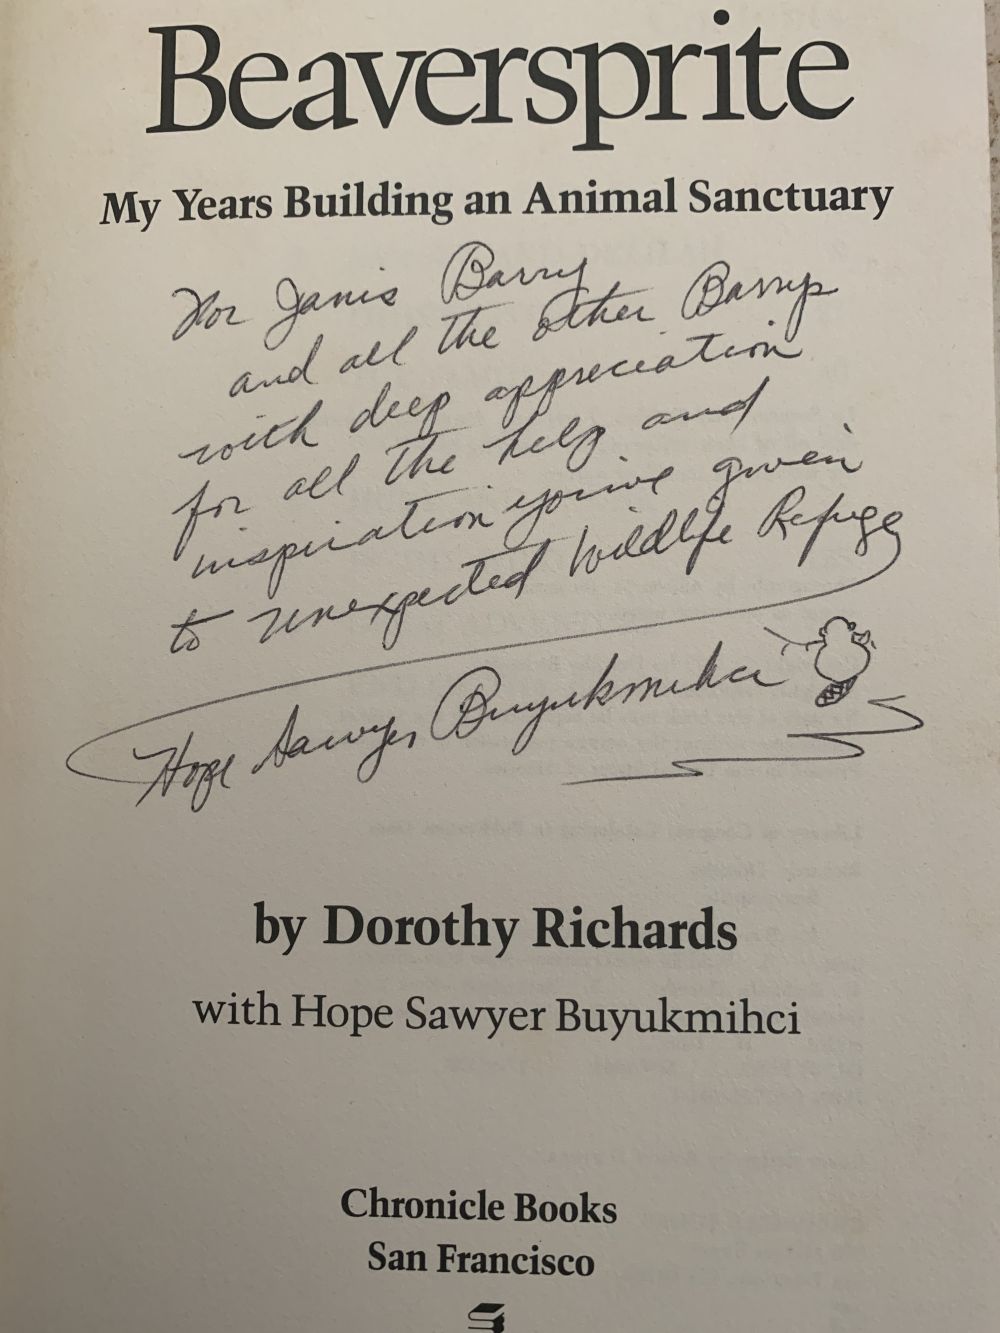 Beaversprite
My Years Building an Animal Sanctuary
For Janis Barry
and all the other Barrys
with deep appreciation
for all the help and
inspiration you've given
to Unexpected Wildlife Refuge
Hope Sawyer Buyukmihci
by Dorothy Richards
with Hope Sawyer Buyukmihci
Chronicle Books
San Francisco